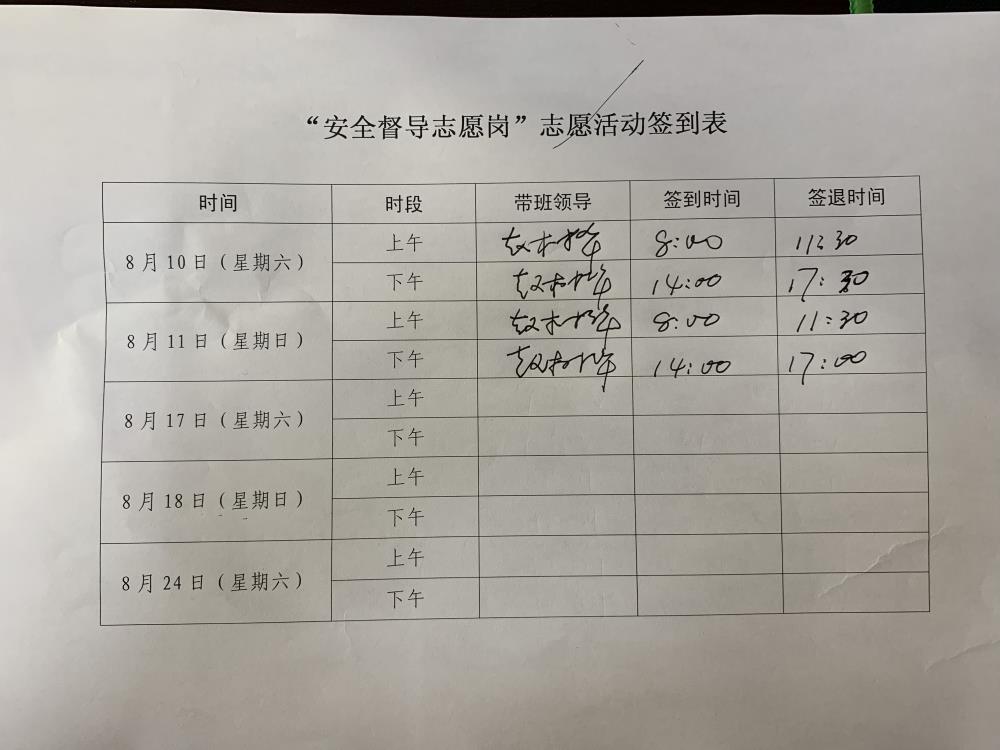 “安全督导志愿岗”志愿活动签到表
时间 时段 带班领导 签到时间 签退时间
8月10日（星期六） 上午 8:00 11:30
下午 14:00 17:30
8月11日（星期日） 上午 8:00 11:30
下午 14:00 17:00
8月17日（星期六） 上午
下午
8月18日（星期日） 上午
下午
8月24日（星期六） 上午
下午